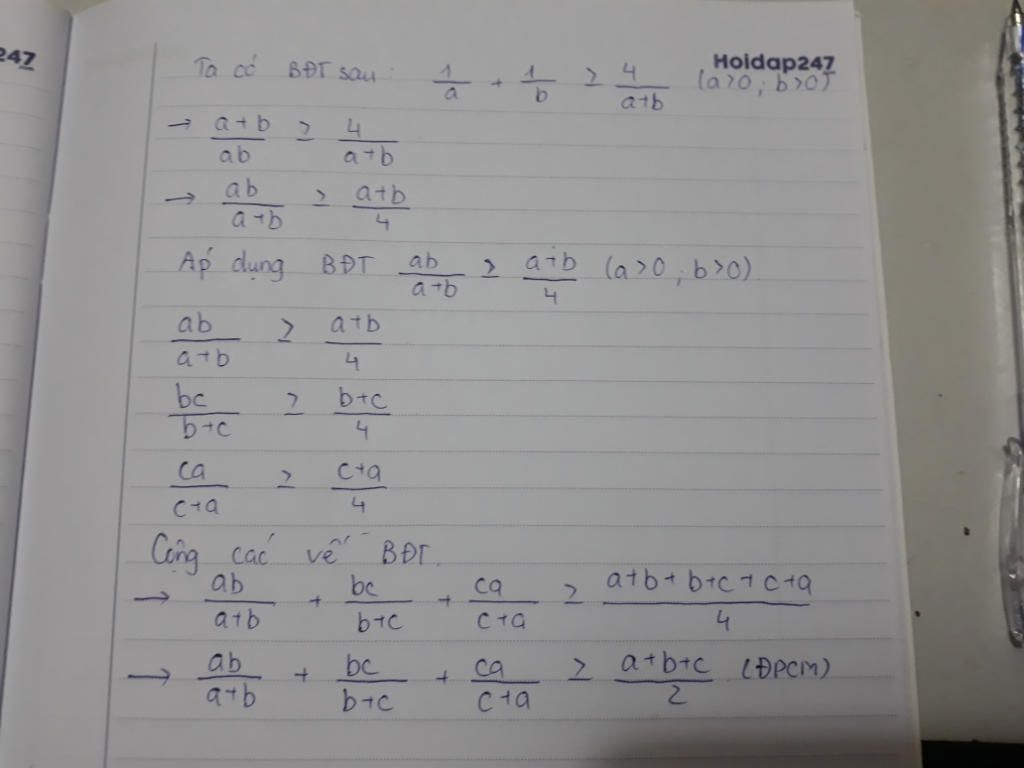 247
Hoidap247
Ta có BĐT sau: 1/a + 1/b ≥ 4/(a+b) (a>0; b>0)
→ (a+b)/ab ≥ 4/(a+b)
→ ab/(a+b) ≥ (a+b)/4
Áp dụng BĐT ab/(a+b) ≥ (a+b)/4 (a>0; b>0)
ab/(a+b) ≥ (a+b)/4
bc/(b+c) ≥ (b+c)/4
ca/(c+a) ≥ (c+a)/4
Cộng các vế BĐT.
→ ab/(a+b) + bc/(b+c) + ca/(c+a) ≥ (a+b+b+c+c+a)/4
→ ab/(a+b) + bc/(b+c) + ca/(c+a) ≥ (a+b+c)/2 (ĐPCM)